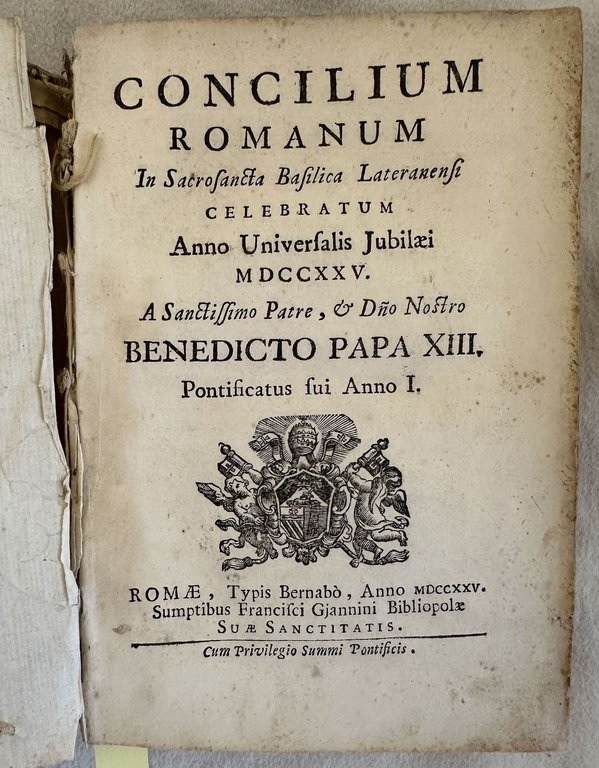 CONCILIUM
ROMANUM
In Sacroſancta Baſilica Lateranenſi
CELEBRATUM
Anno Univerſalis Jubilæi
MDCCXXV.
A Sanctiſſimo Patre, & Dño Noſtro
BENEDICTO PAPA XIII.
Pontificatus ſui Anno I.
ROMÆ, Typis Bernabò, Anno MDCCXXV.
Sumptibus Franciſci Gjannini Bibliopolæ
SUÆ SANCTITATIS.
Cum Privilegio Summi Pontificis.